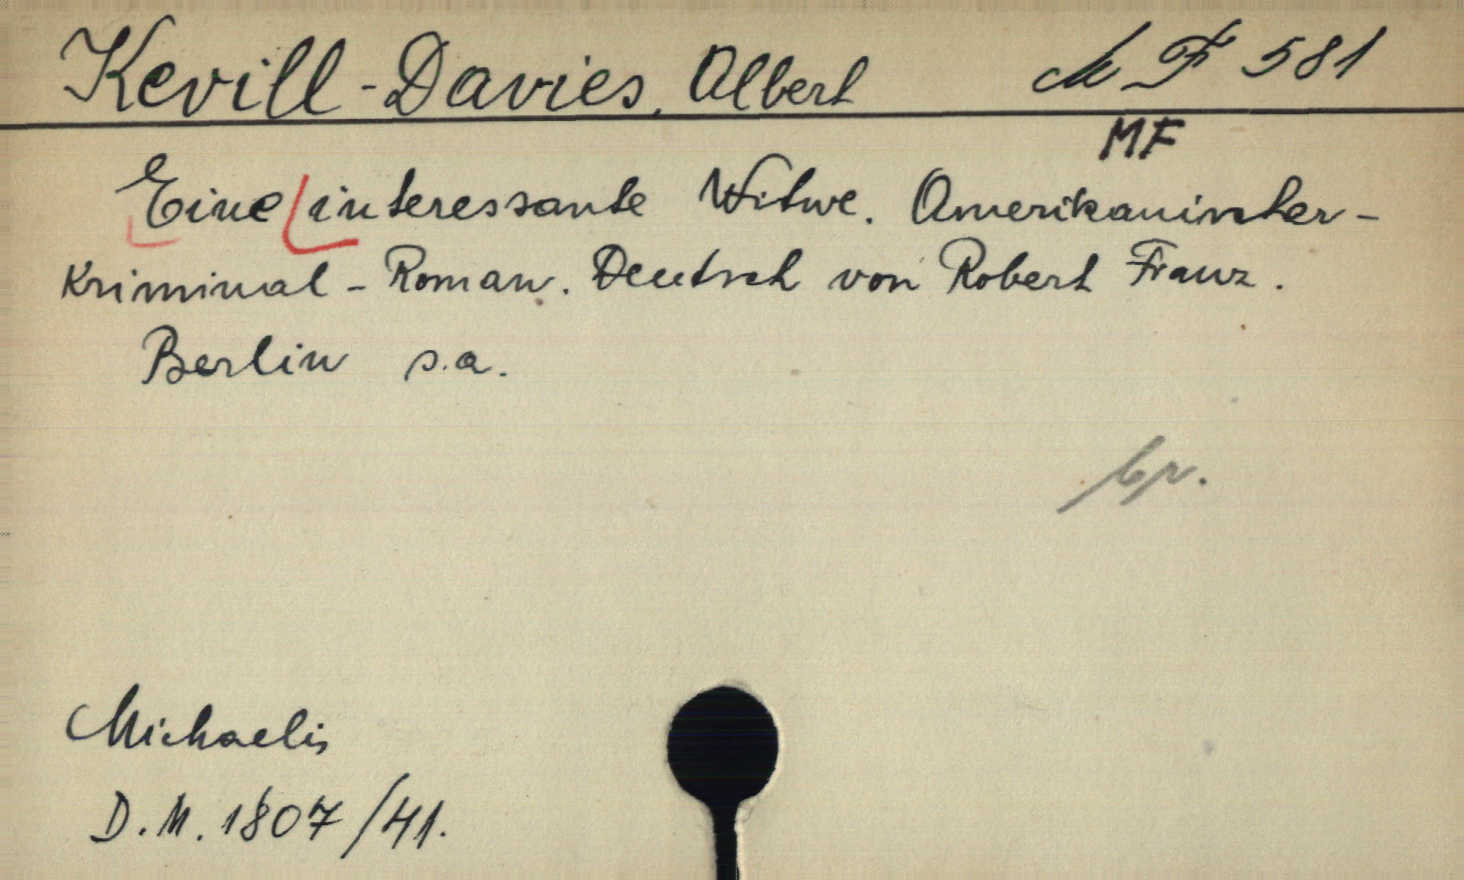 Kevill-Davies, Albert M F 581
MF
Eine interessante Witwe. Amerikanischer-
Kriminal-Roman. Deutsch von Robert Franz.
Berlin s.a.
Michaelis
D.M. 1807/41.